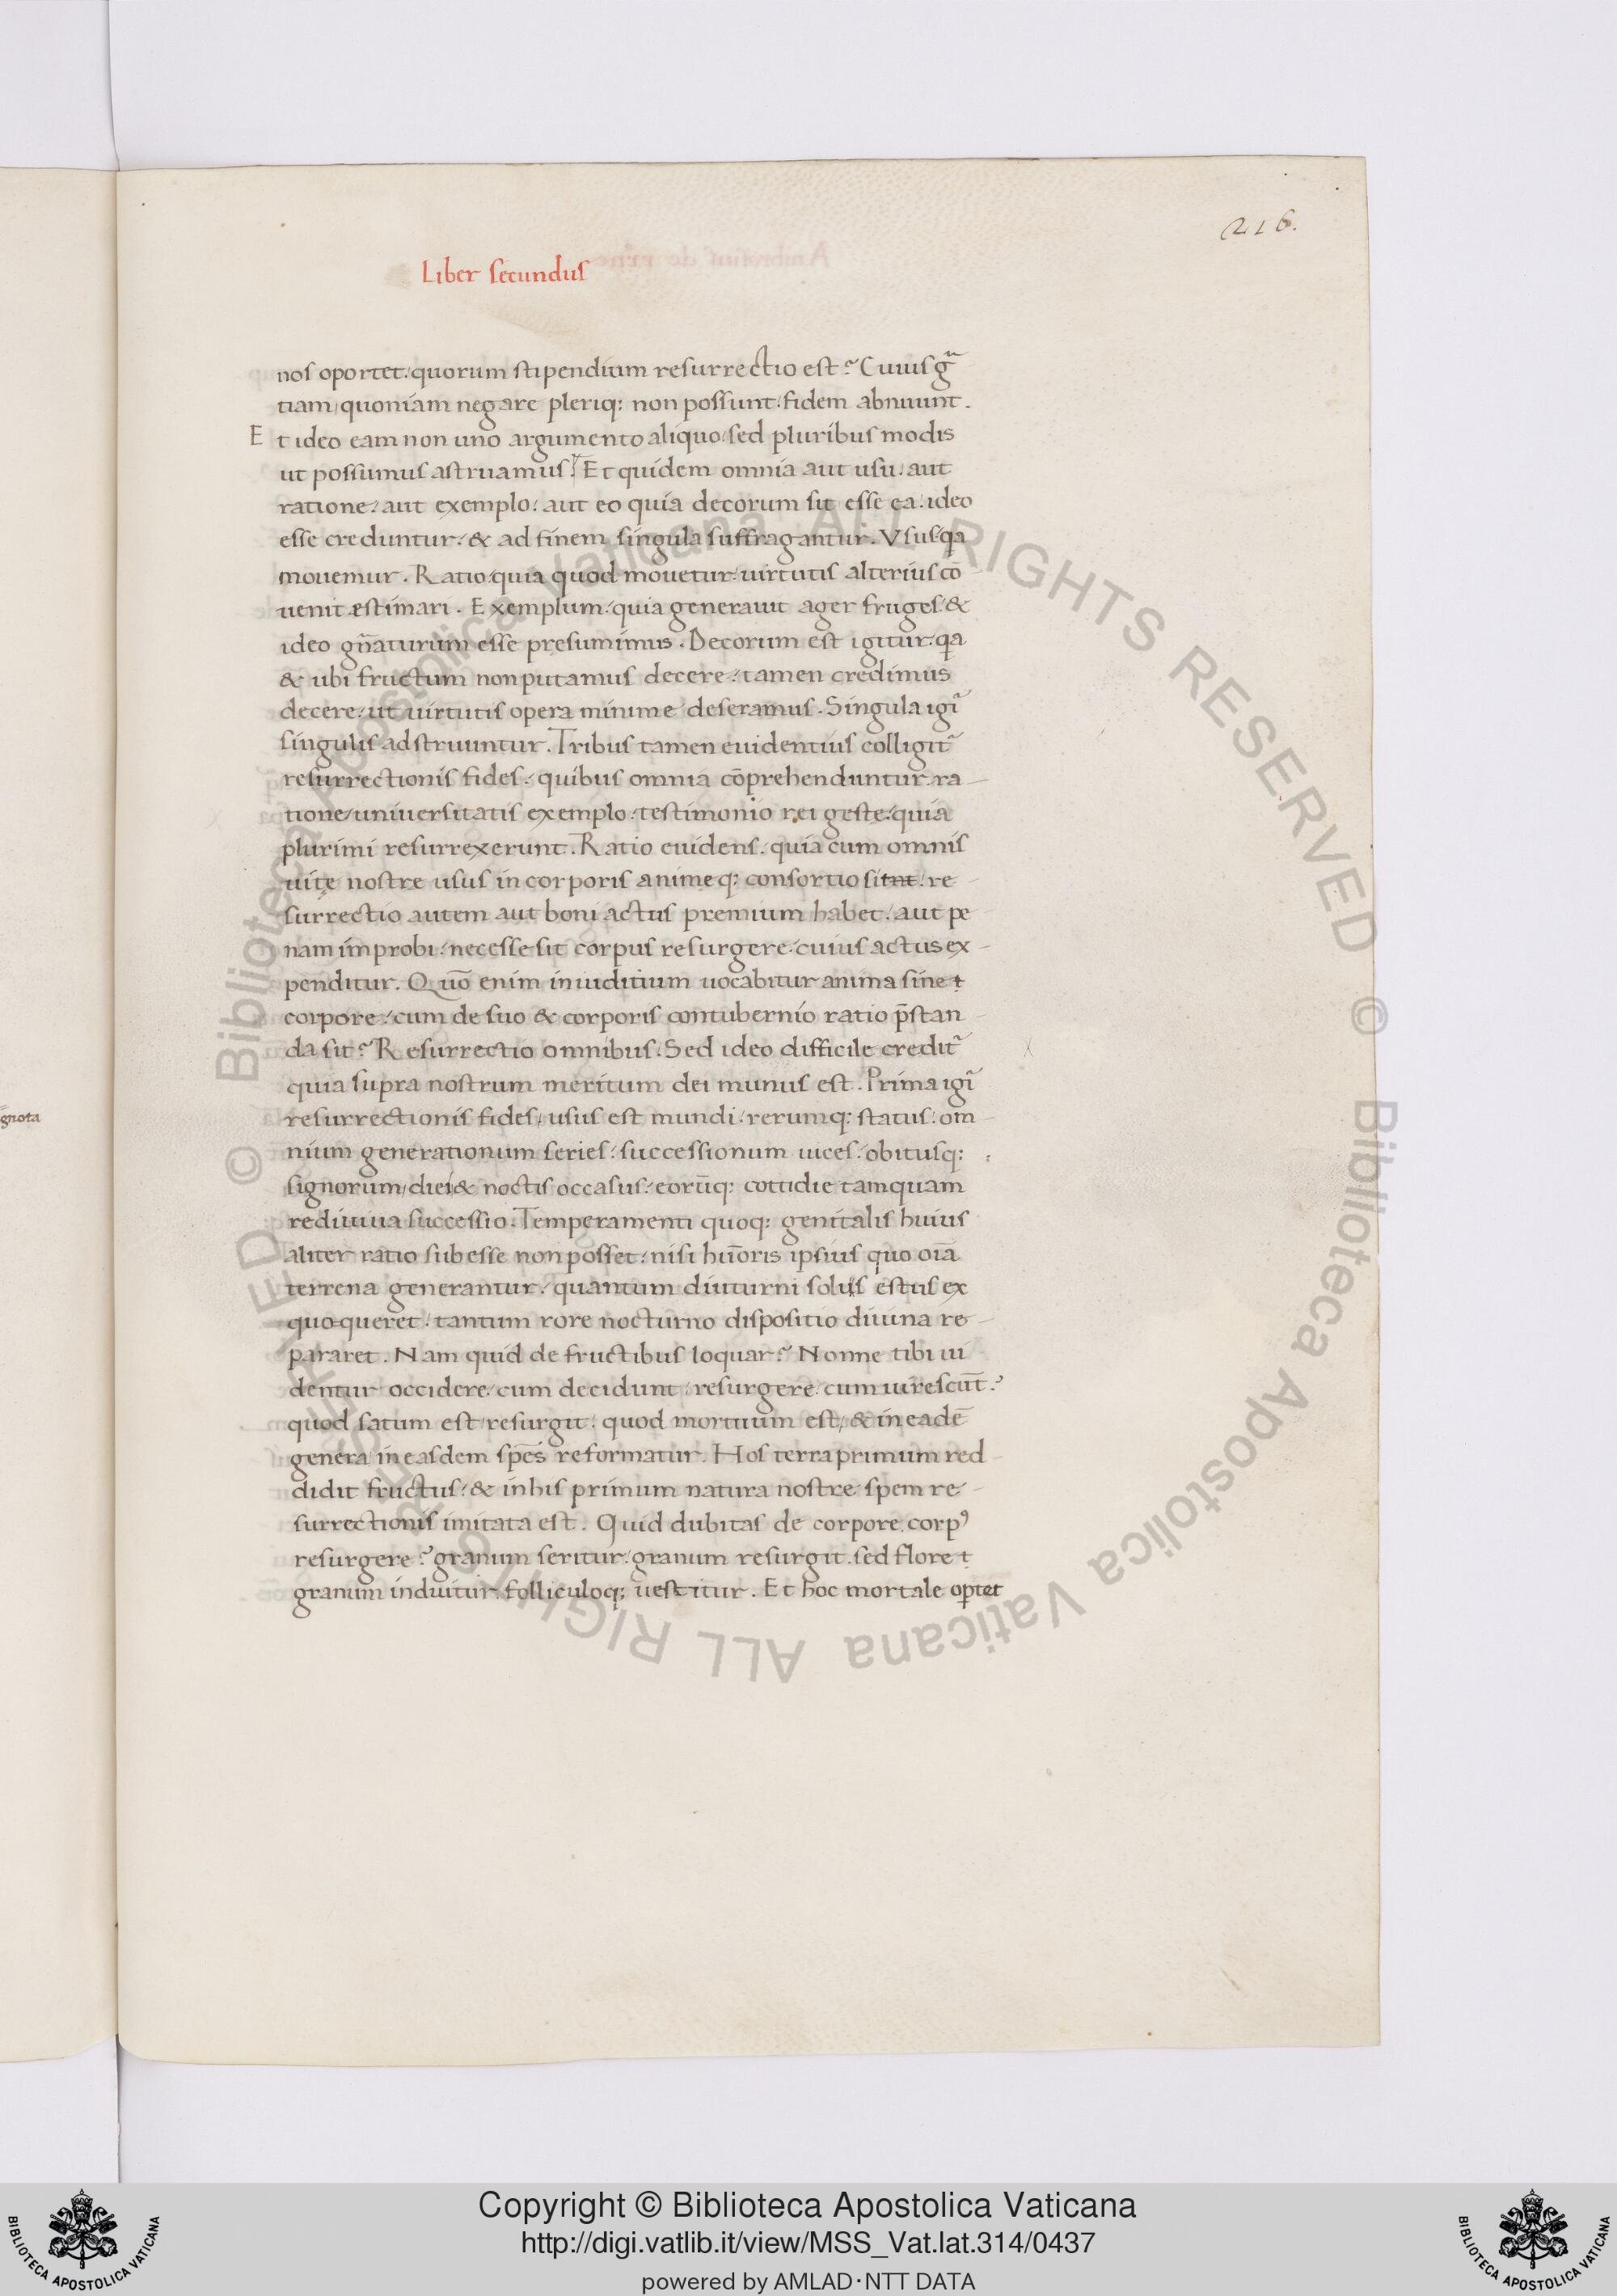 216.
Liber secundus
nos oportet: quorum stipendium resurrectio est? Cuius gr̃a
tiam quoniam negare pleriq; non possunt: fidem abnuunt.
Et ideo eam non uno argumento aliquo: sed pluribus modis
ut possumus astruamus. Et quidem omnia aut usu: aut
ratione: aut exemplo: aut eo quia decorum sit esse ea: ideo
esse creduntur: & ad finem singula suffragantur. Vsus: qa
mouemur. Ratio: quia quod mouetur: uirtutis alterius cō
uenit æstimari. Exemplum: quia generauit ager fruges: &
ideo gñaturum esse presumimus. Decorum est igitur: qa
& ubi fructum non putamus decere: tamen credimus
decere: ut uirtutis opera minime deseramus. Singula igr̃
singulis adstruuntur. Tribus tamen euidentius colligitr̃
resurrectionis fides: quibus omnia cōprehenduntur: ra-
tione: uniuersitatis exemplo: testimonio rei geste: quia
plurimi resurrexerunt. Ratio euidens: quia cum omnis
uitę nostre usus in corporis animeq; consortio sitnt: re-
surrectio autem aut boni actus premium habet: aut pe
nam improbi: necesse sit corpus resurgere: cuius actus ex-
penditur. Quō enim in iuditium uocabitur anima sine
corpore: cum de suo & corporis contubernio ratio p̄stan-
da sit? Resurrectio omnibus. Sed ideo difficile creditr̃
quia supra nostrum meritum dei munus est. Prima igr̃
resurrectionis fides: usus est mundi: rerumq; status: om-
gnota
nium generationum series: successionum uices: obitusq;
signorum: diei & noctis occasus: eorūq; cottidie tamquam
rediuiua successio. Temperamenti quoq; genitalis huius
aliter ratio subesse non posset: nisi hūoris ipsius quo oīa
terrena generantur: quantum diuturni solis estus ex
quoqueret: tantum rore nocturno dispositio diuina re-
pararet. Nam quid de fructibus loquar? Nonne tibi ui
dentur occidere: cum decidunt: resurgere: cum uirescūt?
quod satum est: resurgit: quod mortuum est: & in eadē
genera in easdem sp̄es reformatur. Hos terra primum red-
didit fructus: & in his primum natura nostre spem re-
surrectionis imitata est. Quid dubitas de corpore corp⁹
resurgere? granum seritur: granum resurgit: sed flore
granum induitur: folliculoq; uestitur. Et hoc mortale optet
© Biblioteca Apostolica Vaticana ALL RIGHTS RESERVED
© Biblioteca Apostolica Vaticana ALL RIGHTS RESERVED
Copyright © Biblioteca Apostolica Vaticana
http://digi.vatlib.it/view/MSS_Vat.lat.314/0437
powered by AMLAD·NTT DATA
BIBLIOTECA APOSTOLICA VATICANA
BIBLIOTECA APOSTOLICA VATICANA